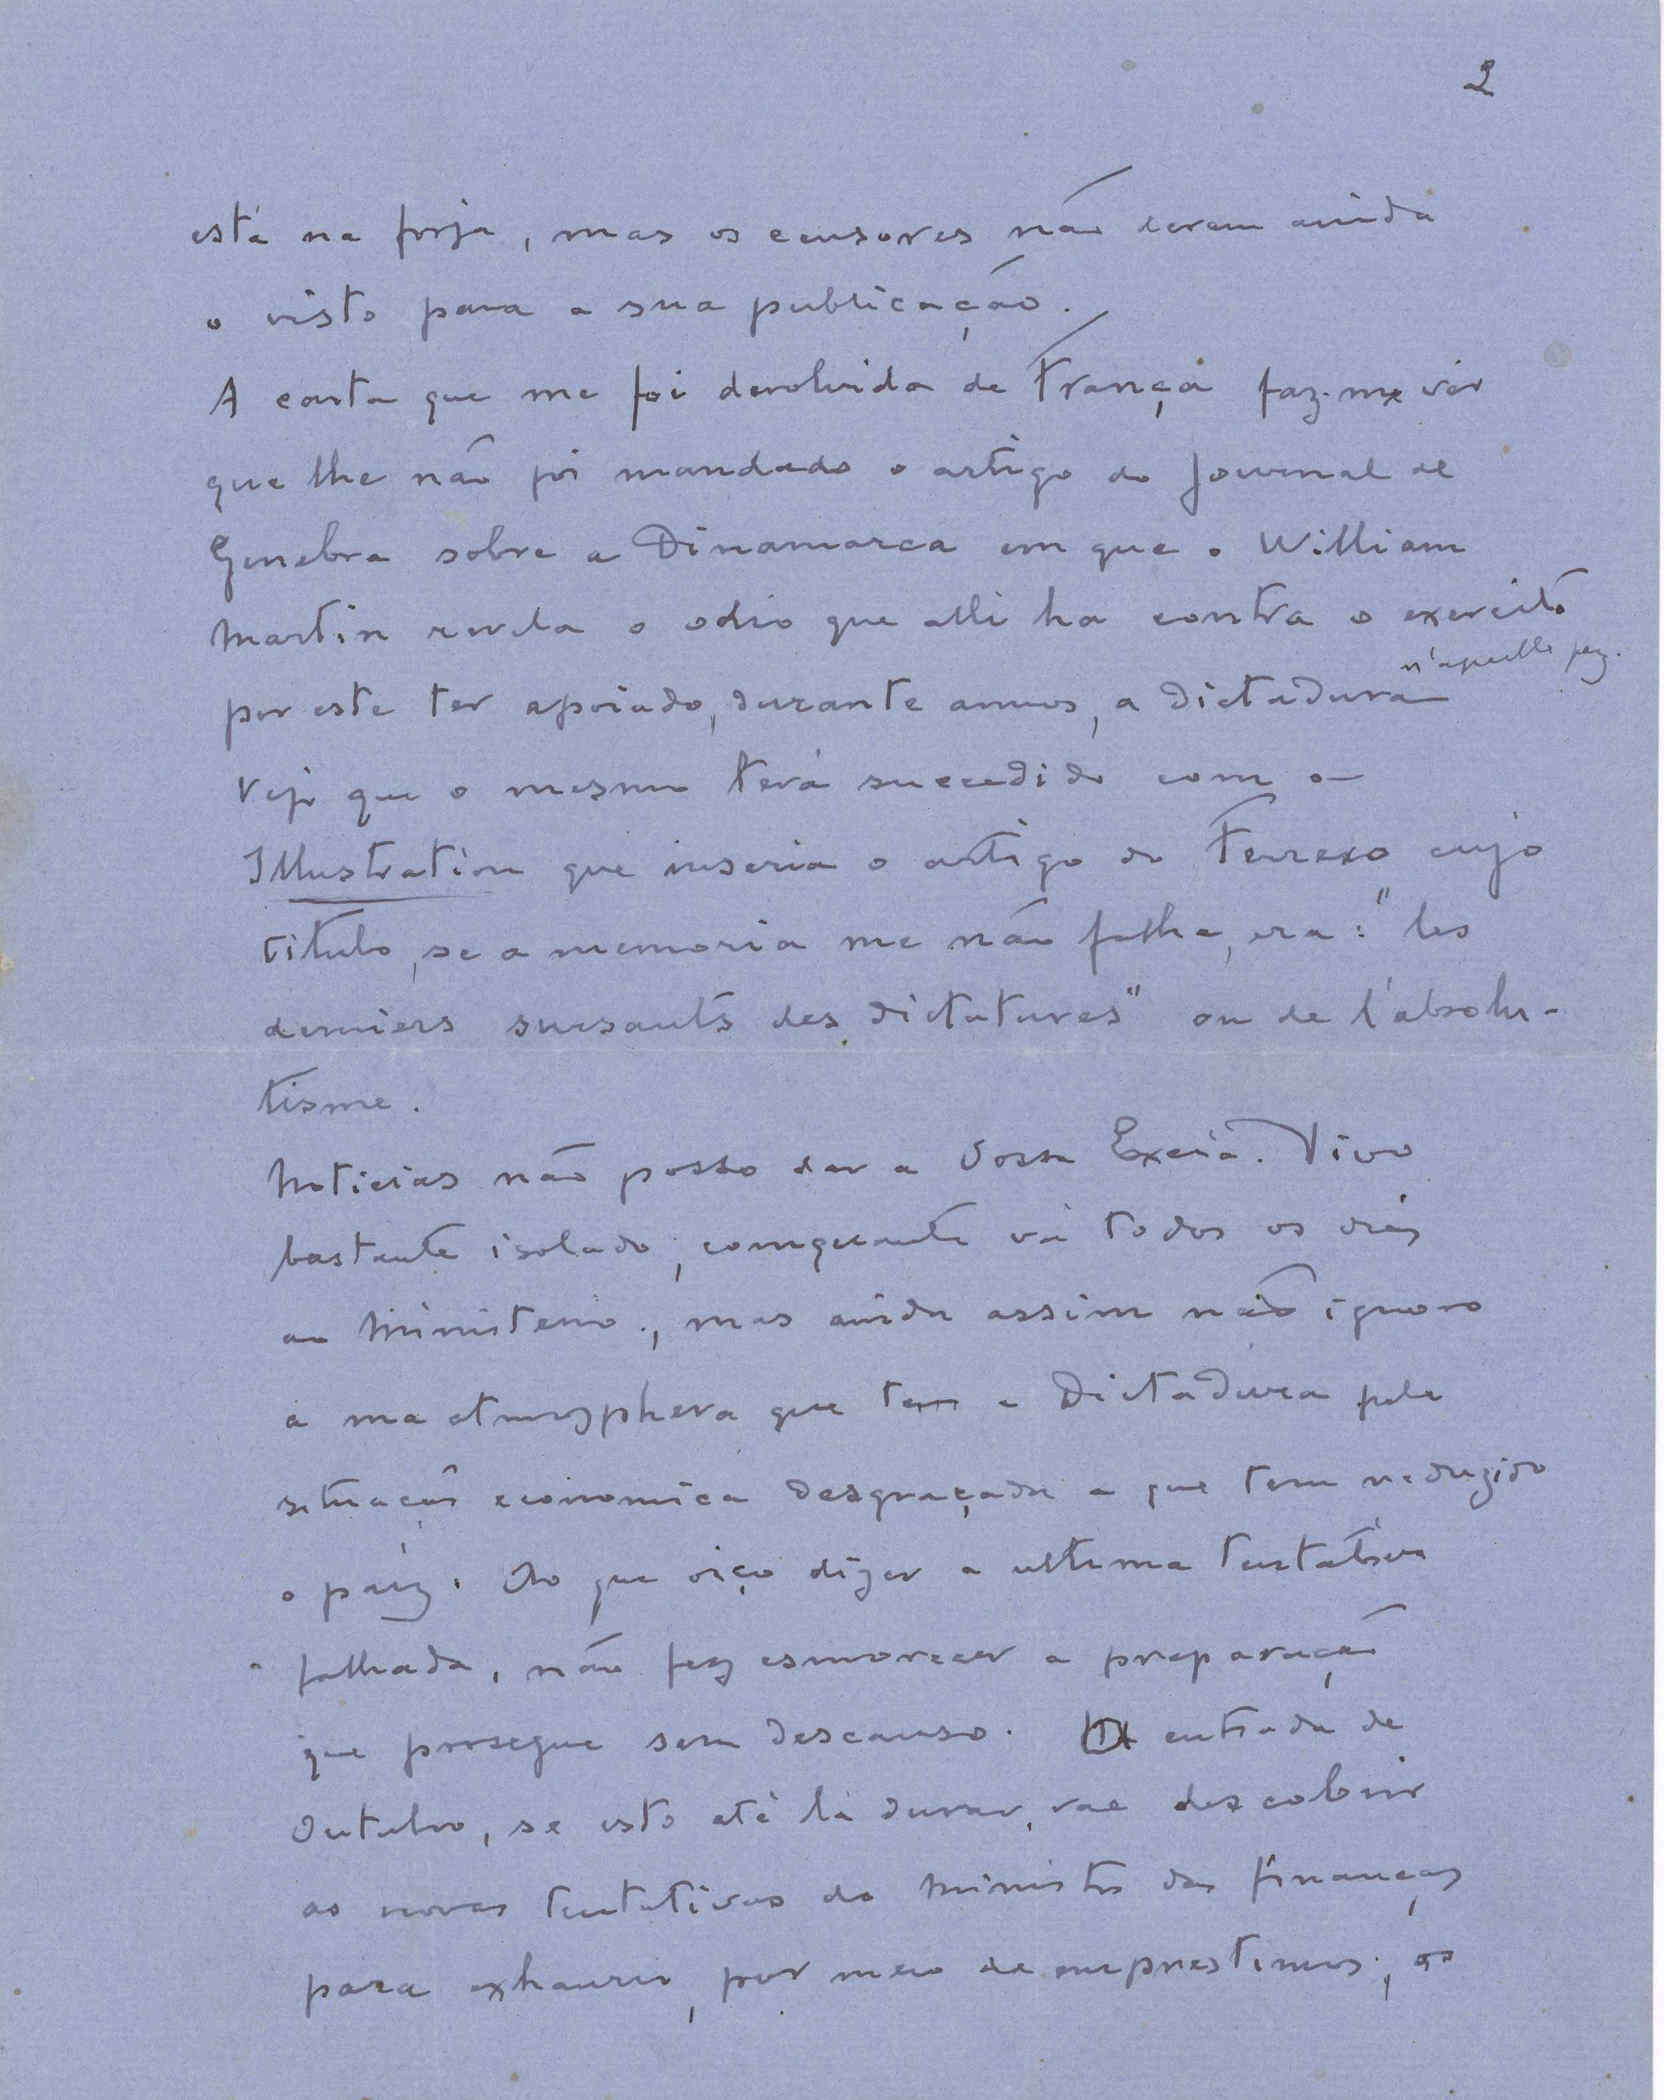 2
está na forja, mas os censores não deram ainda
o visto para a sua publicação.
A carta que me foi devolvida de França faz-me vêr
que lhe não foi mandado o artigo do Journal de
Genebra sobre a Dinamarca em que o William
Martin revela o odio que alli ha contra o exercito
n'aquelle paiz.
por este ter apoiado, durante annos, a dictadura
Vejo que o mesmo terá succedido com o
Illustration que inseria o artigo do Ferrero cujo
titulo, se a memoria me não falha, era: "les
derniers sursauts des dictatures" ou de l'absolu-
tisme.
Noticias não posso dar a Vossa Excia. Vivo
bastante isolado, comquanto vá todos os dias
ao Ministerio, mas ainda assim não ignoro
a má atmosphera que tem a Dictadura pela
situação economica desgraçada a que tem reduzido
o paiz. Ao que oiço dizer a ultima tentativa
falhada, não fez esmorecer a preparação
que prosegue sem descanso. A entrada de
Outubro, se isto até lá durar, vae descobrir
as novas tentativas do Ministro das Finanças
para exhaurir, por meio de emprestimos, os